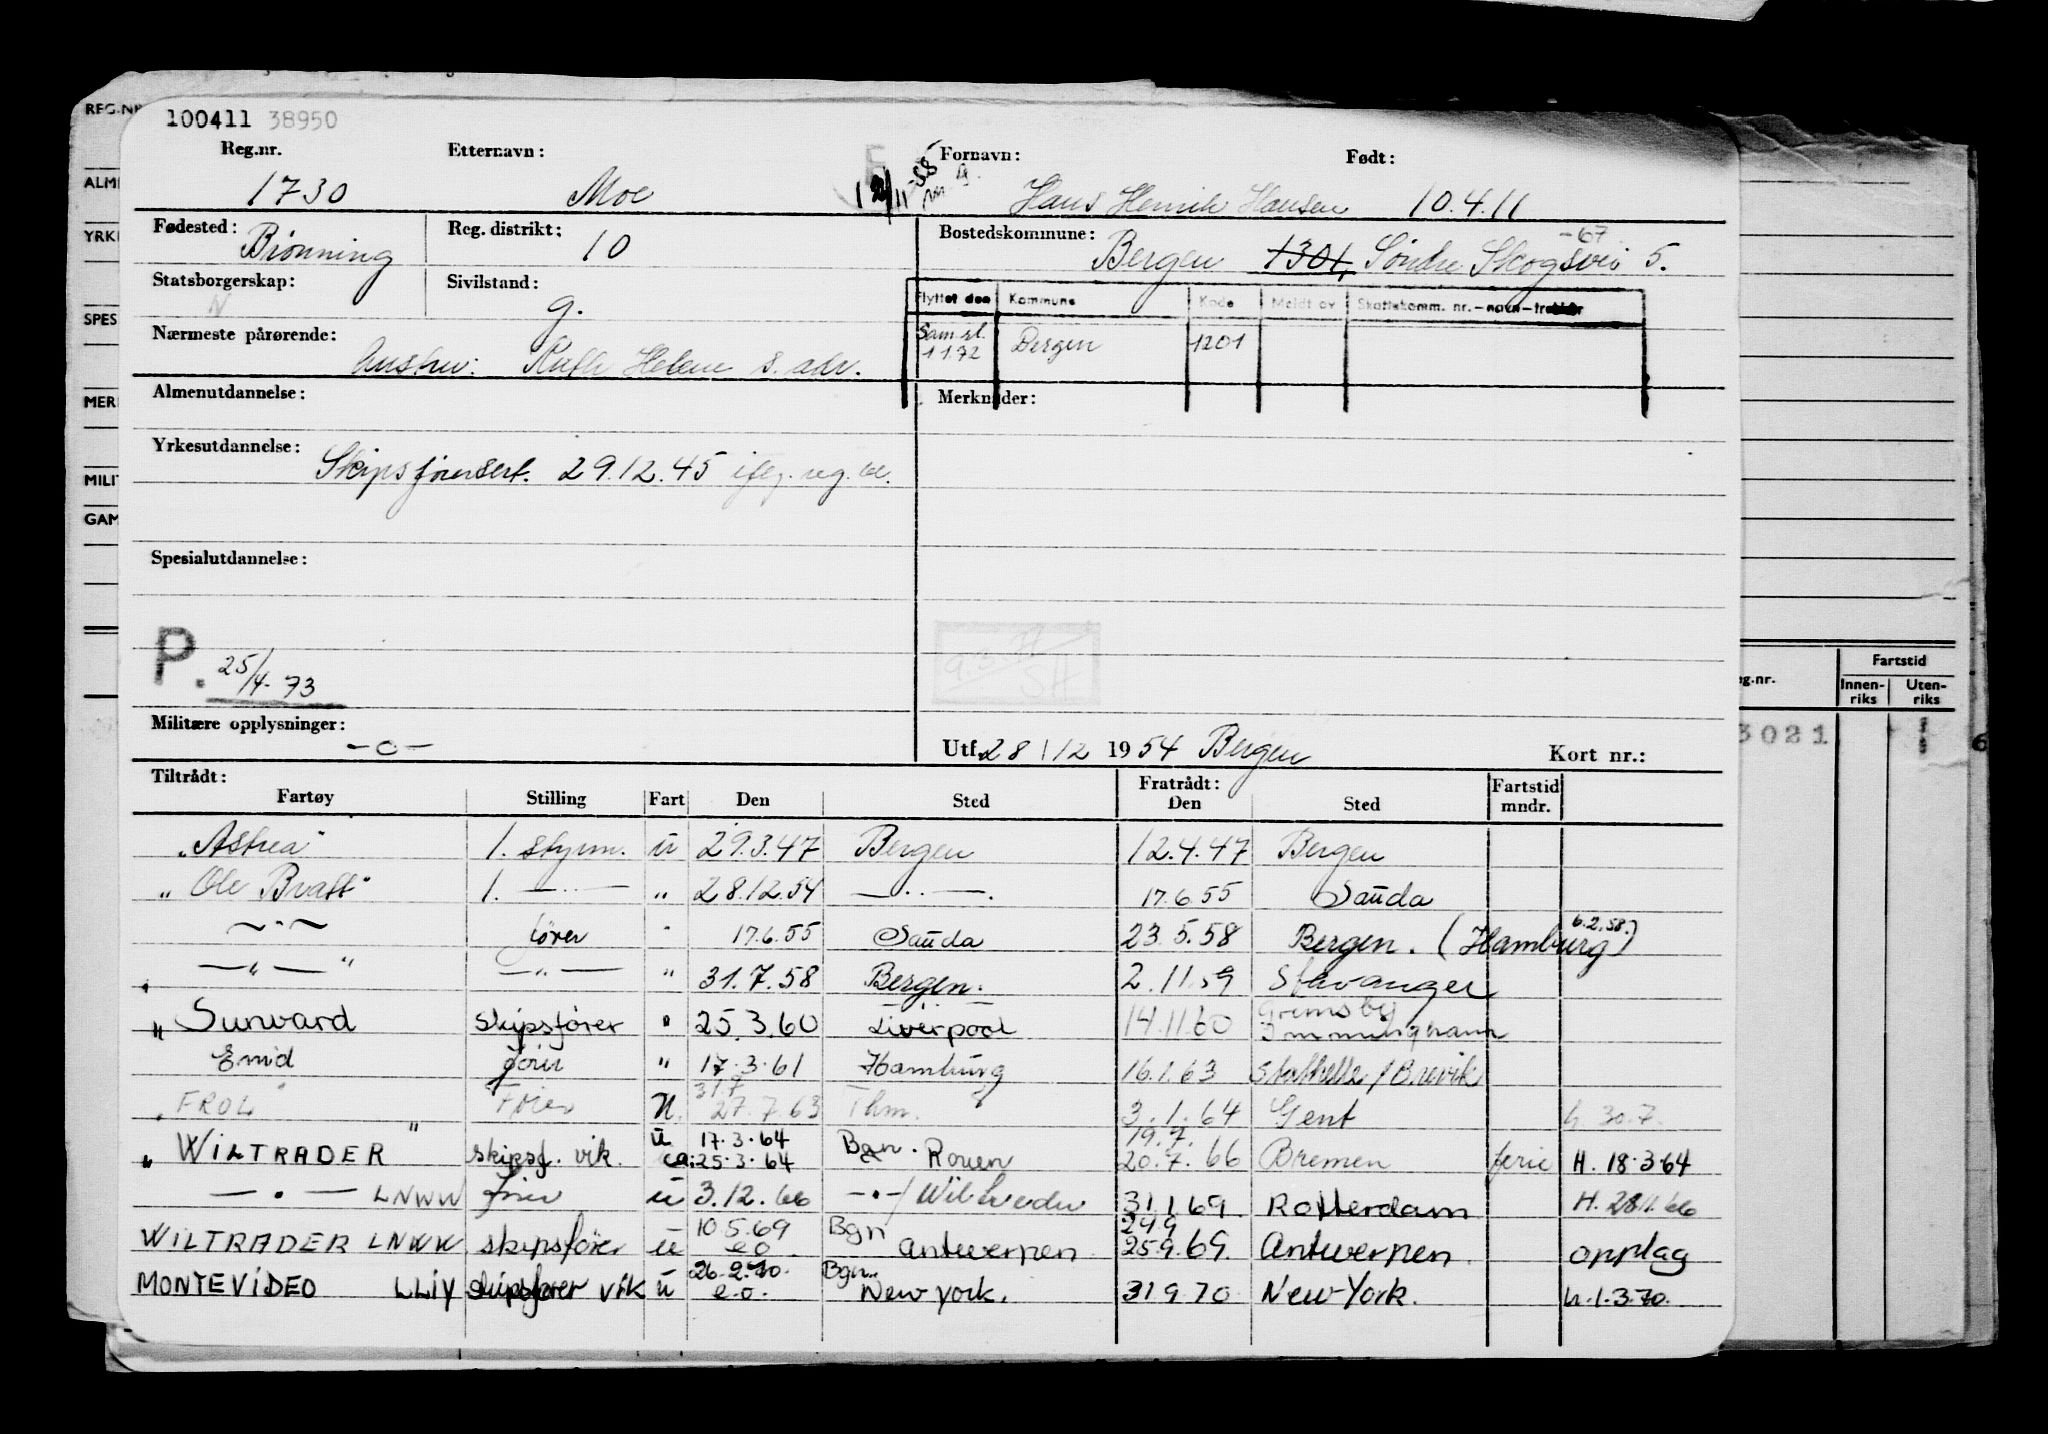 REG.NR
100411 38950
Reg.nr. Etternavn: Fornavn: Født:
1730 Moe 12/11-58 Hans Henrik Hansen 10.4.11
ALM
YRK
Fødested: Brönning Reg. distrikt: 10 Bostedskommune: Bergen 1301, Söndre Skogsvei 5. -67
Statsborgerskap: N Sivilstand: g.
Flyttet den Kommune Kode Meldt av Skattekomm. nr.-navn-trekkår
SPES
Nærmeste pårørende: Hustru: Ruth Helene s. adr.
Sam.sl. 1 1 72 Bergen 1201
MER
Almenutdannelse: Merknader:
Yrkesutdannelse: Skipsförersert. 29.12.45 iflg. reg.
MILI
GAM
Spesialutdannelse:
P. 25/4-73
9.3 SH
Militære opplysninger: -o-
Utf. 28/12 1954 Bergen Kort nr.:
Fartstid
eg.nr. Innen-riks Uten-riks
3021
6
Tiltrådt: Fratrådt:
Fartøy Stilling Fart Den Sted Den Sted Fartstid mndr.
"Astrea" 1. styrm. ü 29.3.47 Bergen 12.4.47 Bergen
"Ole Bratt" 1. —"— " 28.12.54 —"—. 17.6.55 Saüda
—"— förer " 17.6.55 Saüda 23.5.58 Bergen. (Hamburg 6.2.58.)
—"—" —"— " 31.7.58 Bergen. 2.11.59 Stavanger
" Sunward skipsförer " 25.3.60 Liverpool 14.11.60 Grimsby Immingham
Enid förer " 17.3.61 Hamburg 16.1.63 Stathelle/Brevik
"FROL" Förer N. 31.7 27.7.63 Thm. 3.1.64 Gent h. 30.7.
"WILTRADER" skipsf. vik. ü 17.3.64 ca: 25.3.64 Bgn. Rouen 19.7. 20.7.66 Bremen ferie H. 18.3.64
—"— LNWW förer ü 3.12.66 —"—/Wiltrader 31.1.69 Rotterdam H. 28.11.66
WILTRADER LNWW skipsfører ü 10.5.69 eo Bgn Antwerpen 24.9 25.9.69. Antwerpen opplag
MONTEVIDEO LLIY skipsfører vik ü 26.2.70. e.o. Bgn. New York. 31 9.70 New York. h.1.3.70.